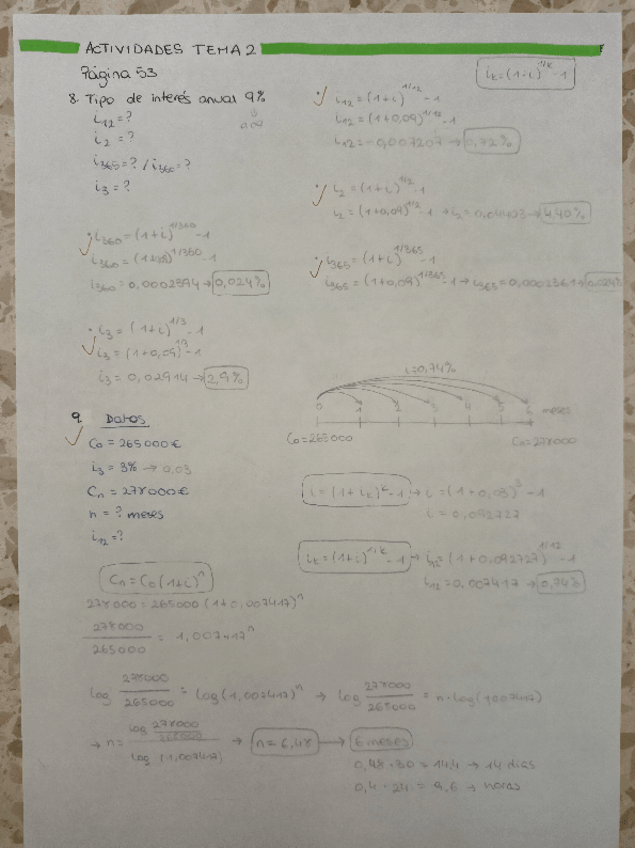 ACTIVIDADES TEMA 2
Página 53
iₖ=(1+i)^1/k-1
8. Tipo de interés anual 9%
0,09
i₁₂=?
i₂=?
i₃₆₅=? / i₃₆₀=?
i₃=?
✓ · i₁₂=(1+i)^1/12-1
i₁₂=(1+0,09)^1/12-1
i₁₂=0,007207→0,72%
✓ · i₂=(1+i)^1/2-1
i₂=(1+0,09)^1/2-1→i₂=0,04403→4,40%
✓ · i₃₆₀=(1+i)^1/360-1
i₃₆₀=(1+0,09)^1/360-1
i₃₆₀=0,0002394→0,024%
✓ · i₃₆₅=(1+i)^1/365-1
i₃₆₅=(1+0,09)^1/365-1→i₃₆₅=0,0002361→0,024%
✓ · i₃=(1+i)^1/3-1
i₃=(1+0,09)^1/3-1
i₃=0,02914→2,9%
i=0,74%
0 1 2 3 4 5 6 meses
C₀=265000 Cₙ=278000
9. Datos
✓ C₀=265000€
i₃=3%→0,03
Cₙ=278000€
n=? meses
i₁₂=?
i=(1+iₖ)^k-1→i=(1+0,03)^3-1
i=0,092727
iₖ=(1+i)^1/k-1→i₁₂=(1+0,092727)^1/12-1
i₁₂=0,007417→0,74%
Cₙ=C₀(1+i)^n
278000=265000(1+0,007417)^n
278000/265000=1,007417^n
log 278000/265000=log(1,007417)^n→log 278000/265000=n·log(1007417)
→n=log 278000/265000 / log(1,007417)→n=6,48→6 meses
0,48·30=14,4→14 días
0,4·24=9,6→horas